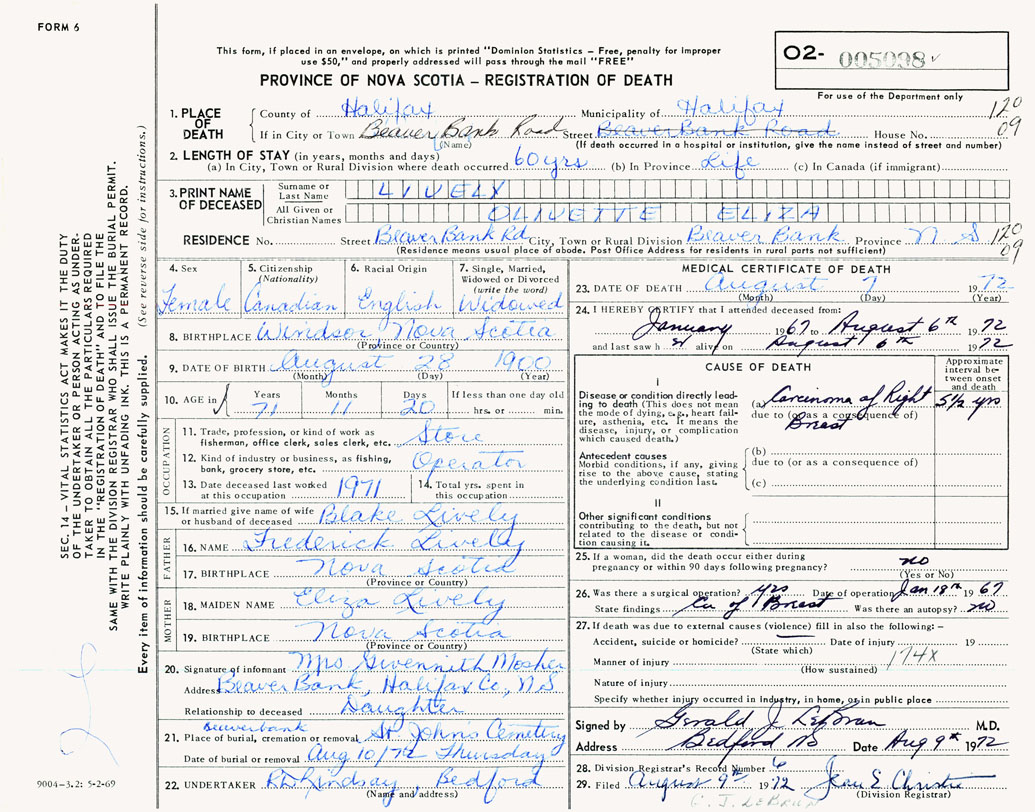 FORM 6
This form, if placed in an envelope, on which is printed "Dominion Statistics – Free, penalty for improper
use $50," and properly addressed will pass through the mail "FREE"
PROVINCE OF NOVA SCOTIA – REGISTRATION OF DEATH
O2- 005098
For use of the Department only
1. PLACE OF DEATH
County of Halifax Municipality of Halifax
If in City or Town Beaver Bank Road Street Beaver Bank Road House No.
(Name) (If death occurred in a hospital or institution, give the name instead of street and number)
120
09
2. LENGTH OF STAY (in years, months and days)
(a) In City, Town or Rural Division where death occurred 60 yrs (b) In Province Life (c) In Canada (if immigrant)
3. PRINT NAME OF DECEASED
Surname or Last Name LIVELY
All Given or Christian Names OLIVETTE ELIZA
RESIDENCE No. Street Beaver Bank Rd City, Town or Rural Division Beaver Bank Province N.S
(Residence means usual place of abode. Post Office Address for residents in rural parts not sufficient)
120
09
4. Sex Female
5. Citizenship (Nationality) Canadian
6. Racial Origin English
7. Single, Married, Widowed or Divorced (write the word) Widowed
8. BIRTHPLACE Windsor, Nova Scotia
(Province or Country)
9. DATE OF BIRTH August 28 1900
(Month) (Day) (Year)
10. AGE in Years 71 Months 11 Days 20 If less than one day old hrs. or min.
OCCUPATION
11. Trade, profession, or kind of work as fisherman, office clerk, sales clerk, etc. Store
12. Kind of industry or business, as fishing, bank, grocery store, etc. Operator
13. Date deceased last worked at this occupation 1971
14. Total yrs. spent in this occupation
15. If married give name of wife or husband of deceased Blake Lively
FATHER
16. NAME Frederick Lively
17. BIRTHPLACE Nova Scotia
(Province or Country)
MOTHER
18. MAIDEN NAME Eliza Lively
19. BIRTHPLACE Nova Scotia
(Province or Country)
20. Signature of informant Mrs Gwennith Mosher
Address Beaver Bank, Halifax Co, N.S.
Relationship to deceased Daughter
Beaverbank
21. Place of burial, cremation or removal St John's Cemetery
Date of burial or removal Aug 10/72 Thursday
22. UNDERTAKER Lindsay, Bedford
(Name and address)
MEDICAL CERTIFICATE OF DEATH
23. DATE OF DEATH August 7 1972
(Month) (Day) (Year)
24. I HEREBY CERTIFY that I attended deceased from:
January 1967 to August 6th 1972
and last saw h er alive on August 6th 1972
CAUSE OF DEATH
Approximate interval between onset and death
I
Disease or condition directly leading to death (This does not mean the mode of dying, e.g., heart failure, asthenia, etc. It means the disease, injury, or complication which caused death.)
(a) Carcinoma of Right 5½ yrs
due to (or as a consequence of)
Breast
Antecedent causes
Morbid conditions, if any, giving rise to the above cause, stating the underlying condition last.
(b)
due to (or as a consequence of)
(c)
II
Other significant conditions
contributing to the death, but not related to the disease or condition causing it.
25. If a woman, did the death occur either during pregnancy or within 90 days following pregnancy? no
(Yes or No)
26. Was there a surgical operation? yes Date of operation Jan 18th 1967
State findings Ca of Breast Was there an autopsy? no
27. If death was due to external causes (violence) fill in also the following:–
Accident, suicide or homicide? Date of injury 19
(State which)
Manner of injury 174X
(How sustained)
Nature of injury
Specify whether injury occurred in Industry, in home, or in public place
Signed by Gerald J. LeBrun M.D.
Address Bedford NS Date Aug 9th 1972
28. Division Registrar's Record Number 6
29. Filed August 9th 1972 Jean E Christie
(Division Registrar)
G. J. LEBRUN
SEC. 14 – VITAL STATISTICS ACT MAKES IT THE DUTY
OF THE UNDERTAKER OR PERSON ACTING AS UNDER-
TAKER TO OBTAIN ALL THE PARTICULARS REQUIRED
IN THE "REGISTRATION OF DEATH" AND TO FILE THE
SAME WITH THE DIVISION REGISTRAR WHO SHALL ISSUE THE BURIAL PERMIT.
WRITE PLAINLY WITH UNFADING INK. THIS IS A PERMANENT RECORD.
Every item of information should be carefully supplied. (See reverse side for instructions.)
9004-3.2: 5-2-69